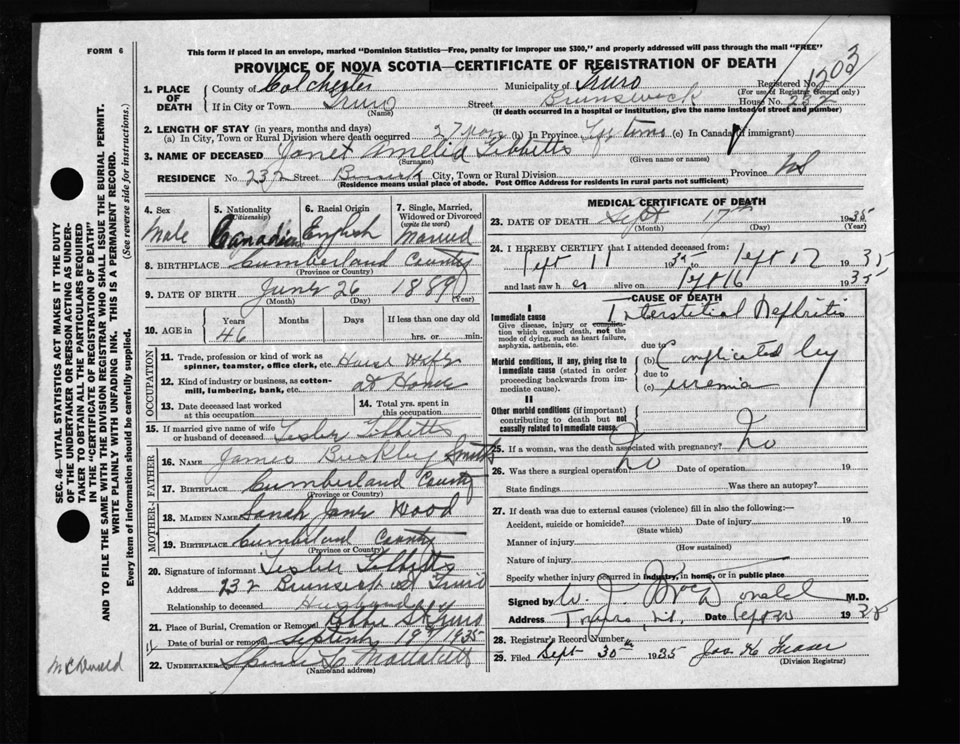 FORM 6
This form if placed in an envelope, marked "Dominion Statistics—Free, penalty for improper use $300," and properly addressed will pass through the mail "FREE"
PROVINCE OF NOVA SCOTIA—CERTIFICATE OF REGISTRATION OF DEATH
1203
1. PLACE OF DEATH
County of Colchester Municipality of Truro Registered No.
(For use of Registrar General only)
If in City or Town Truro Street Brunswick House No. 232
(Name) (If death occurred in a hospital or institution, give the name instead of street and number)
2. LENGTH OF STAY (in years, months and days)
(a) In City, Town or Rural Division where death occurred 27 (b) In Province Life time (c) In Canada (if immigrant)
3. NAME OF DECEASED Janet Amelia Tibbetts
(Surname) (Given name or names)
RESIDENCE No. 232 Street City, Town or Rural Division Province NS
(Residence means usual place of abode. Post Office Address for residents in rural parts not sufficient)
4. Sex Male
5. Nationality (Citizenship) Canadian
6. Racial Origin English
7. Single, Married, Widowed or Divorced (write the word) Married
8. BIRTHPLACE Cumberland County
(Province or Country)
9. DATE OF BIRTH June 26 1889
(Month) (Day) (Year)
10. AGE in Years Months Days If less than one day old
46 hrs. or min.
OCCUPATION
11. Trade, profession or kind of work as spinner, teamster, office clerk, etc. House Wife
12. Kind of industry or business, as cotton-mill, lumbering, bank, etc. at Home
13. Date deceased last worked at this occupation
14. Total yrs. spent in this occupation
15. If married give name of wife or husband of deceased Lesler Tibbetts
FATHER
16. NAME James Buckley Smith
17. BIRTHPLACE Cumberland County
(Province or Country)
MOTHER
18. MAIDEN NAME Sarah Jane Wood
19. BIRTHPLACE Cumberland County
(Province or Country)
20. Signature of informant Lesler Tibbetts
Address 232 Brunswick St Truro
Relationship to deceased Husband
21. Place of Burial, Cremation or Removal
Date of burial or removal September 19th 1935
22. UNDERTAKER
(Name and address)
MEDICAL CERTIFICATE OF DEATH
23. DATE OF DEATH Sept 17th 1935
(Month) (Day) (Year)
24. I HEREBY CERTIFY that I attended deceased from:
Sept 11 1935 to Sept 17 1935
and last saw her alive on Sept 16 1935
CAUSE OF DEATH
I
Immediate cause Interstitial Nephritis
Give disease, injury or complication which caused death, not the mode of dying, such as heart failure, asphyxia, asthenia, etc.
due to
Morbid conditions, if any, giving rise to immediate cause (stated in order proceeding backwards from immediate cause).
(b) Complicated by
due to
(c) uremia
II
Other morbid conditions (if important) contributing to death but not causally related to immediate cause.
25. If a woman, was the death associated with pregnancy? No
26. Was there a surgical operation? No Date of operation 19
State findings Was there an autopsy?
27. If death was due to external causes (violence) fill in also the following:—
Accident, suicide or homicide? Date of injury 19
(State which)
Manner of injury
(How sustained)
Nature of injury
Specify whether injury occurred in industry, in home, or in public place
Signed by W. J. McDonald M.D.
Address Truro, N.S. Date Sept 20 1935
28. Registrar's Record Number
29. Filed Sept 30th 1935 Jas. K. Fraser
(Division Registrar)
McDonald
SEC. 46—VITAL STATISTICS ACT MAKES IT THE DUTY
OF THE UNDERTAKER OR PERSON ACTING AS UNDERTAKER
TO OBTAIN ALL THE PARTICULARS REQUIRED
IN THE "CERTIFICATE OF REGISTRATION OF DEATH"
AND TO FILE THE SAME WITH THE DIVISION REGISTRAR WHO SHALL ISSUE THE BURIAL PERMIT.
WRITE PLAINLY WITH UNFADING INK. THIS IS A PERMANENT RECORD.
Every item of information should be carefully supplied. (See reverse side for instructions.)